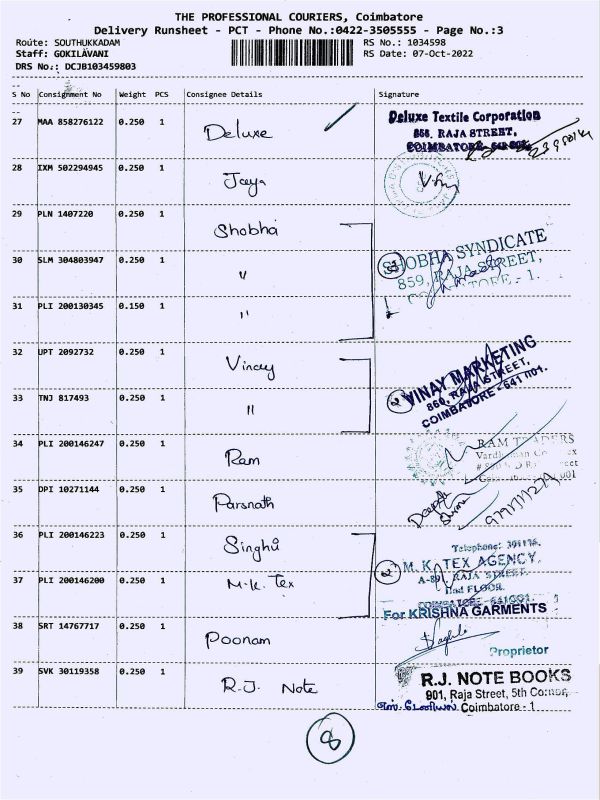 THE PROFESSIONAL COURIERS, Coimbatore
Delivery Runsheet - PCT - Phone No.:0422-3505555 - Page No.:3
Route: SOUTHUKKADAM
RS No.: 1034598
Staff: GOKILAVANI
RS Date: 07-Oct-2022
DRS No.: DCJB103459803
S No Consignment No Weight PCS Consignee Details Signature
27 MAA 858276122 0.250 1 Deluxe
Deluxe Textile Corporation
866, RAJA STREET,
COIMBATORE
28 IXM 502294945 0.250 1 Jaya
29 PLN 1407220 0.250 1 Shobha
30 SLM 304803947 0.250 1 "
2 SHOBHA SYNDICATE
859, RAJA STREET,
COIMBATORE - 1.
31 PLI 200130345 0.150 1 "
32 UPT 2092732 0.250 1 Vinay
33 TNJ 817493 0.250 1 "
2 VINAY MARKETING
860, RAJA STREET,
COIMBATORE - 641 001.
34 PLI 200146247 0.250 1 Ram
RAM TRADERS
35 DPI 10271144 0.250 1 Parsnath
Deepak
36 PLI 200146223 0.250 1 Singhu
Telephone:
37 PLI 200146200 0.250 1 M.K. Tex
2 M. K. TEX AGENCY.
RAJA STREET.
IInd FLOOR.
COIMBATORE - 641001.
For KRISHNA GARMENTS
38 SRT 14767717 0.250 1 Poonam
Proprietor
39 SVK 30119358 0.250 1 R.J. Note
R.J. NOTE BOOKS
901, Raja Street, 5th Corner,
Coimbatore - 1
8